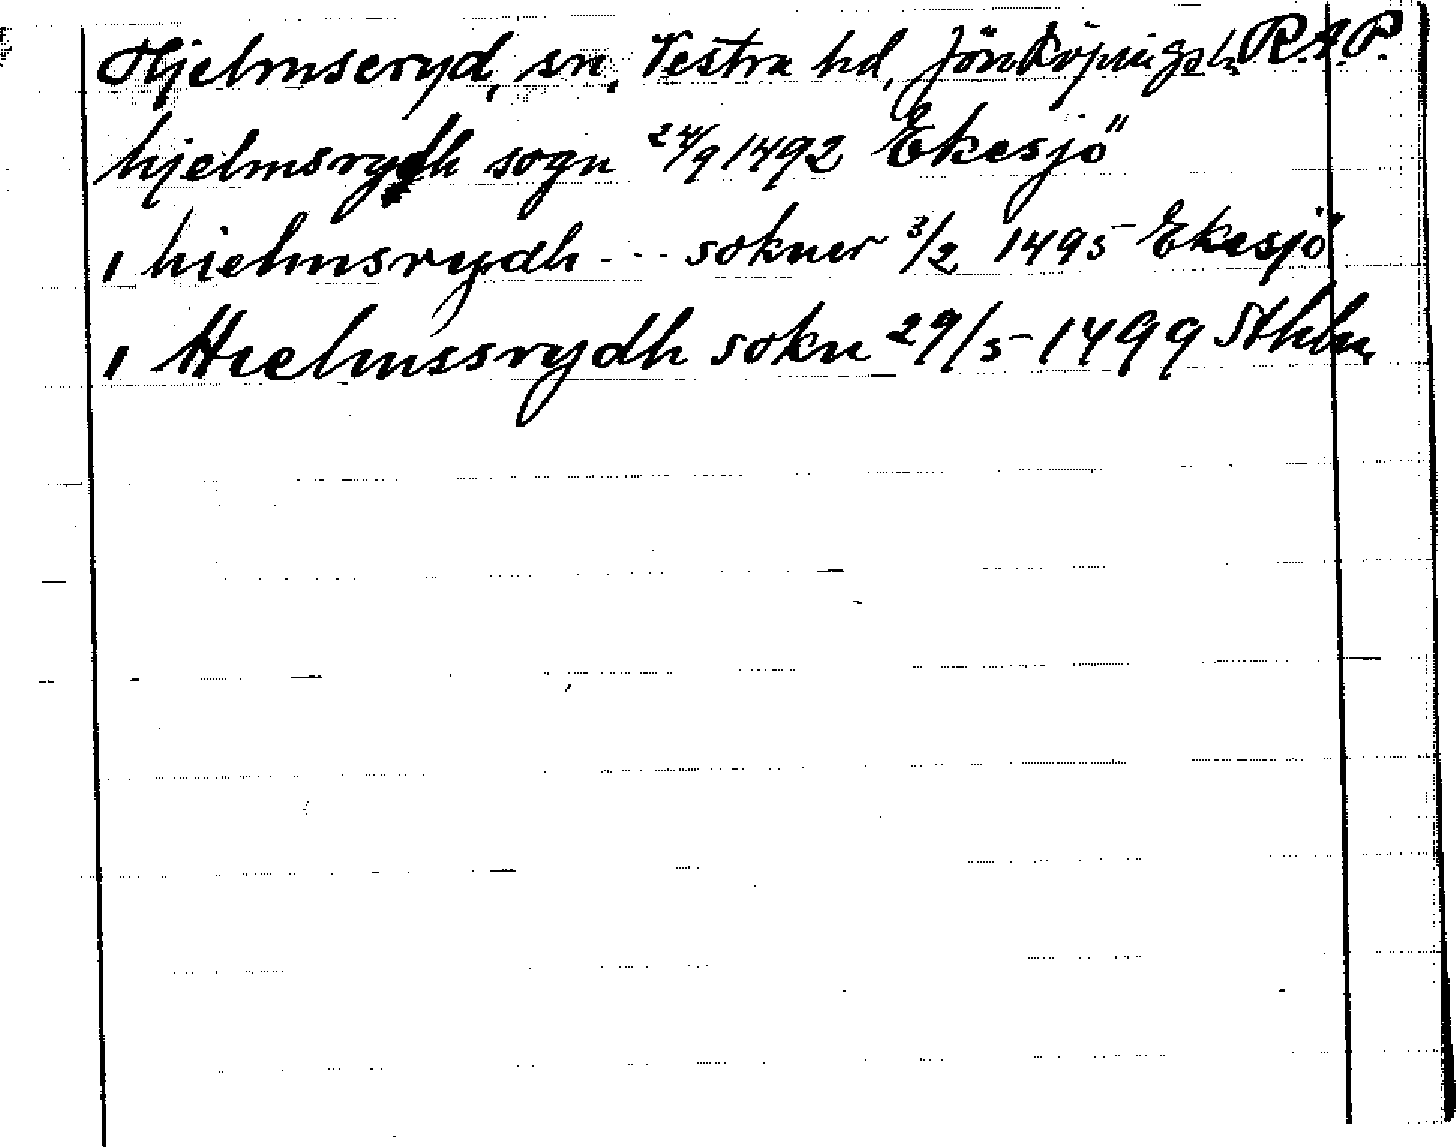 Hjelmseryd, sn, Vestra hd, Jönköpings l. R.A.P.
hjelmsrydh sogn 24/9 1492 Eksjö
i hielmsrydh --- sokner 3/2 1495 Ekesjö
i Hielmssrydh sokn 29/5 1499 Sthlm